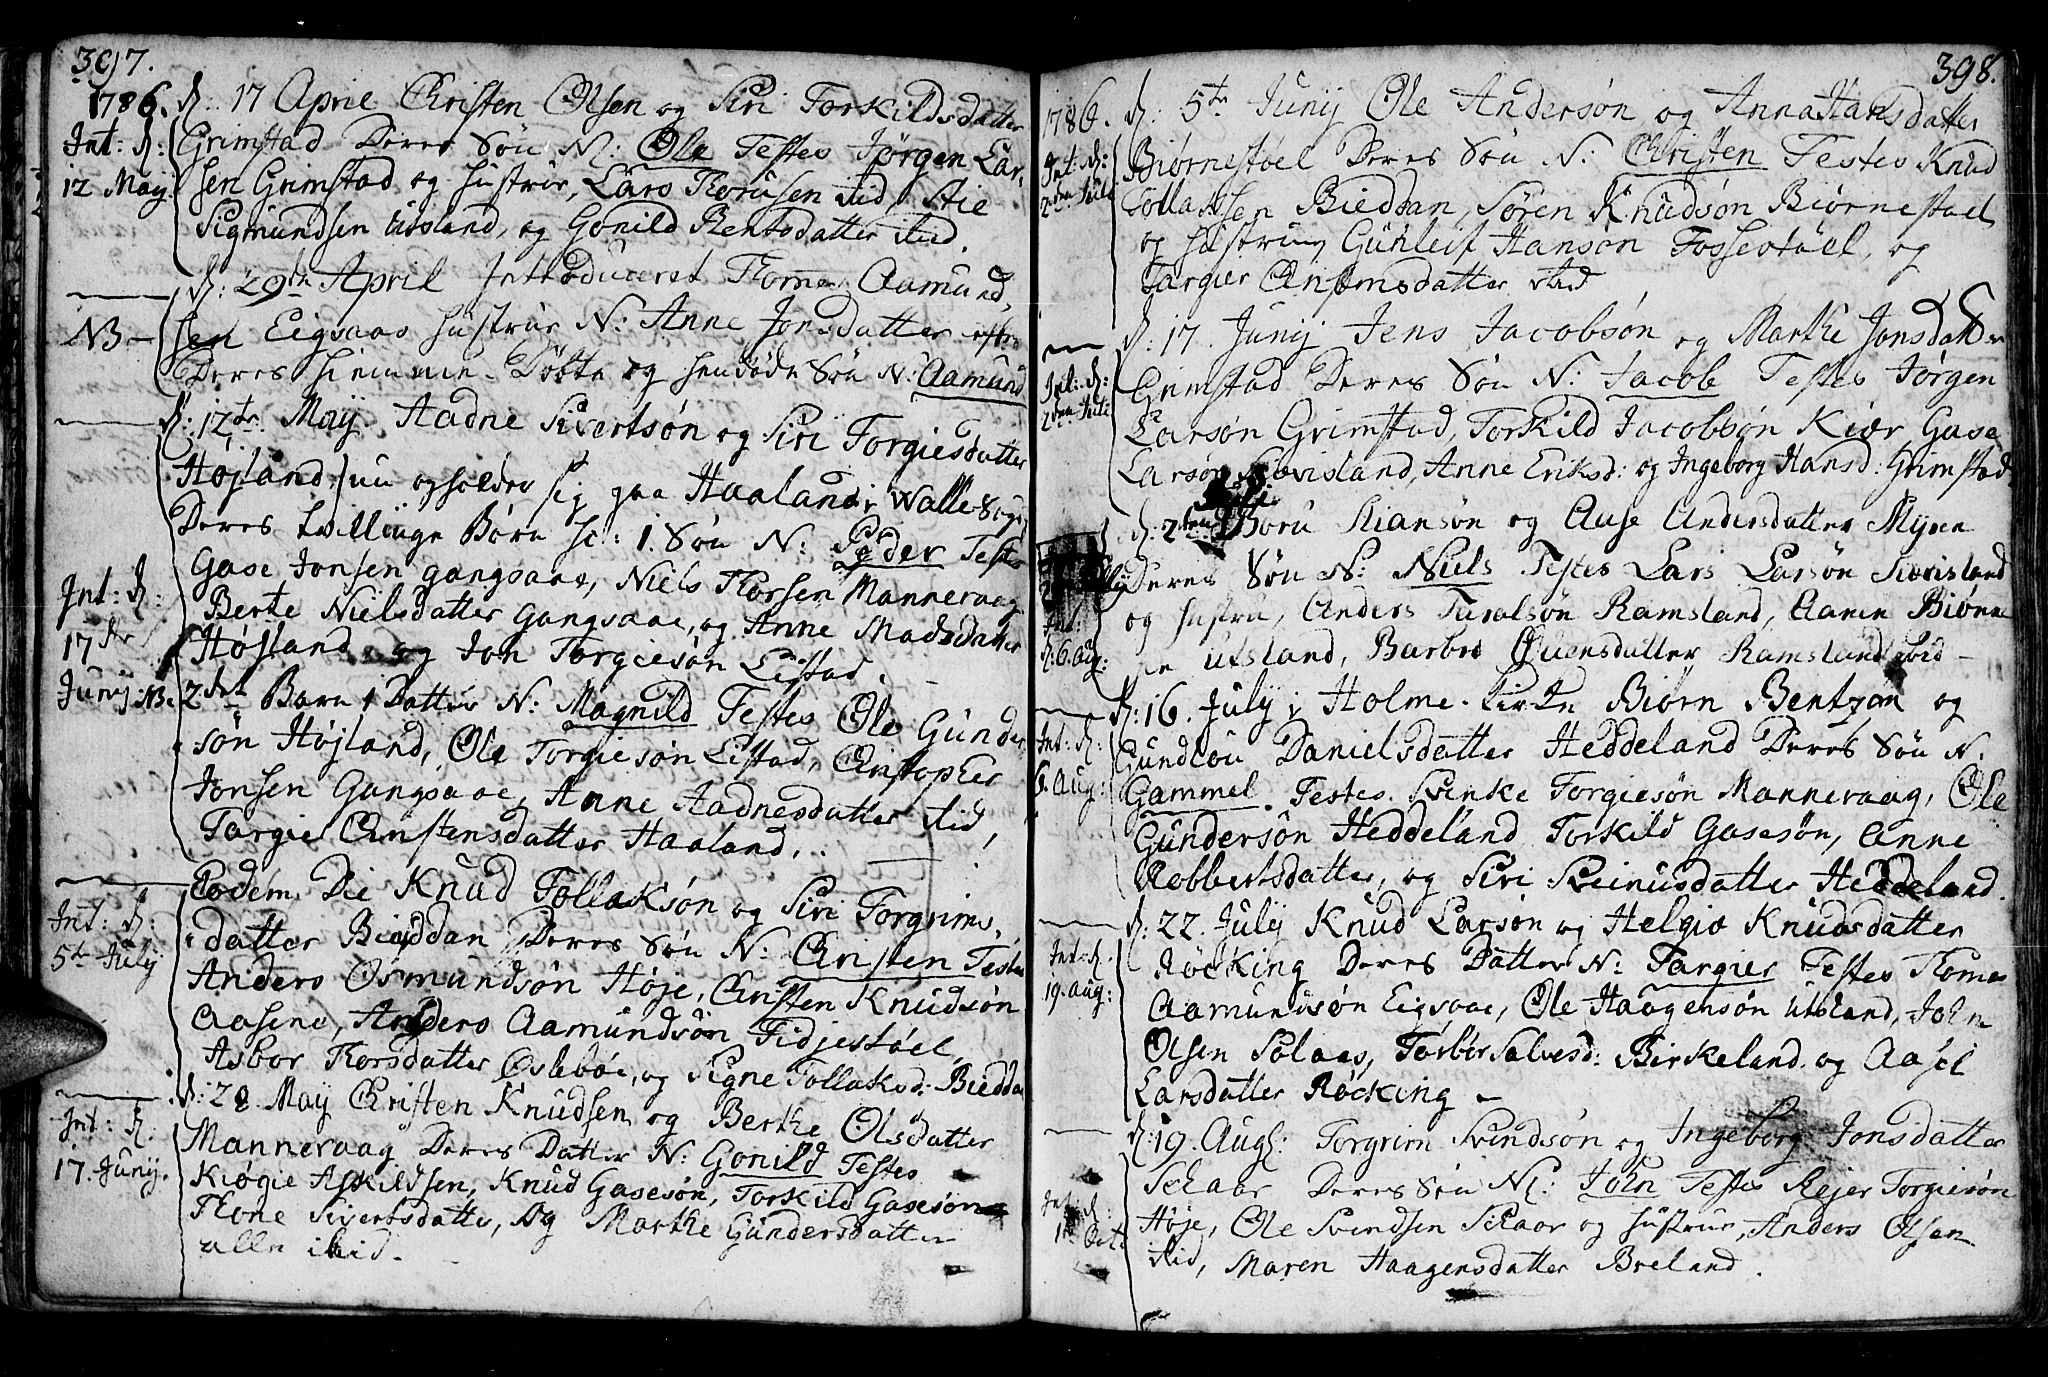 397.
1786. d: 17 Aprie Christen Olsen og Siri Torkildsdatter
Int: d: Grimstad Deres Søn N: Ole Testes Jørgen Lar-
12 Maij. sen Grimstad og Hustrue, Lars Thorusen ibid, Aie
Sigmundsen Uusland, og Gonild Bentsdatter ibid.
d: 29de April Introduceret Thomes Aamund-
NB – sen Eigsaas Hustrue N: Anne Jonsdatter efter
Deres hiemme-Døbte og Søn N: Aamund
d: 12te Maij Aadne Sivertsøn og Siri Torgiesdatter
Højland, nu opholder sig paa Haaland i Walle-Sogn
Deres tvillinge Børn sc: 1. Søn N: Peder Testes
Gase Jonsen Gangsaae, Niels Thorsen Manneraag
Int: d: Berte Nielsdatter Gangsaae, og Anne Madsdatter
17de Højland, og Jon Torgiesøn Listad.
Junij NB. 2det Barn 1 Datter N: Magnild Testes Ole Gunder-
søn Højland, Ole Torgiesøn Listad, Christopher
Jonsen Gangsaae, Anne Aadnesdatter ibid,
Targie Christensdatter Haaland.
Eodem Die Knud Tollaksøn og Siri Torgrims-
Int: d: datter Bieddan Deres Søn N: Christen Testes
5te July Anders Osmundsøn Høje, Christen Knudsøn
Aasene, Anders Aamundsøn Fidjestøel,
Asbor Thorsdatter Øslebøe, og Signe Tollaksd: Biedda
d: 28 Maij Christen Knudsen og Berthe Olsdatter
Int: d. Manneraag Deres Datter N: Gonild Testes
17. Junij. Kiøgie Askildsen, Knud Gasesøn, Torkild Gasesøn
Thone Sivertsdatter, og Marthe Gundersdatter
alle ibid.
398.
1786. d: 5te Junij Ole Andersøn og Anna Hansdatter
Int: d: Biørnestøel Deres Søn N: Christen Testes Knud
2den Julii Tollaksen Bieddan, Søren Knudsøn Biørnestøel
og Hustrue, Gunleif Hansøn Fossestøel, og
Targier datter ibid
d: 17. Junij Jens Jacobsøn og Marthe Jonsdatter
Int: d: Grimstad Deres Søn N: Jacob Testes Jørgen
2den Julii Larsøn Grimstad, Torkild Jacobsøn Kiær, Gase
Larsøn Siævisland, Anne Eriksd: og Ingeborg Hansd: Grimstad
d: 2den July Boru Stiansøn og Aase Andersdatter Myren
Deres Søn N: Niels Testes Lars Larsøn Siævisland
Int: og Hustru, Anders Taralsøn Ramsland, Aanen Biørn-
d: 6. Aug: sen Utsland, Barbro Ouensdatter Ramsland ibid –
d: 16. July i Holme-Kirke Biørn Bentzøn og
Int: d: Gundlou Danielsdatter Heddeland Deres Søn N.
6. Aug: Gammel. Testes. Svinke Torgiesøn Manneraag, Ole
Gundersøn Heddeland Torkild Gasesøn, Anne
Robbertsdatter, og Siri Sveinusdatter Heddeland.
d: 22. July Knud Larsøn og Helgie Knudsdatter
Int: d. Røcking Deres Datter N: Targier Testes Thomes
19. Aug: Aamundsøn Eigsaae, Ole Haagensøn Utsland, John
Olsen Solaas, Torbør Salvesd: Birkeland og Aasel
Larsdatter Røcking –
d: 19. Aug: Torgrim Svindsøn og Ingeborg Jonsdatter
Schaar Deres Søn N: John Testes Rejer Torgiesøn
Int: d: Høje, Ole Svendsen Schaar og Hustrue, Anders Olsen
1 Oct: ibid, Maren Haagensdatter Breland.